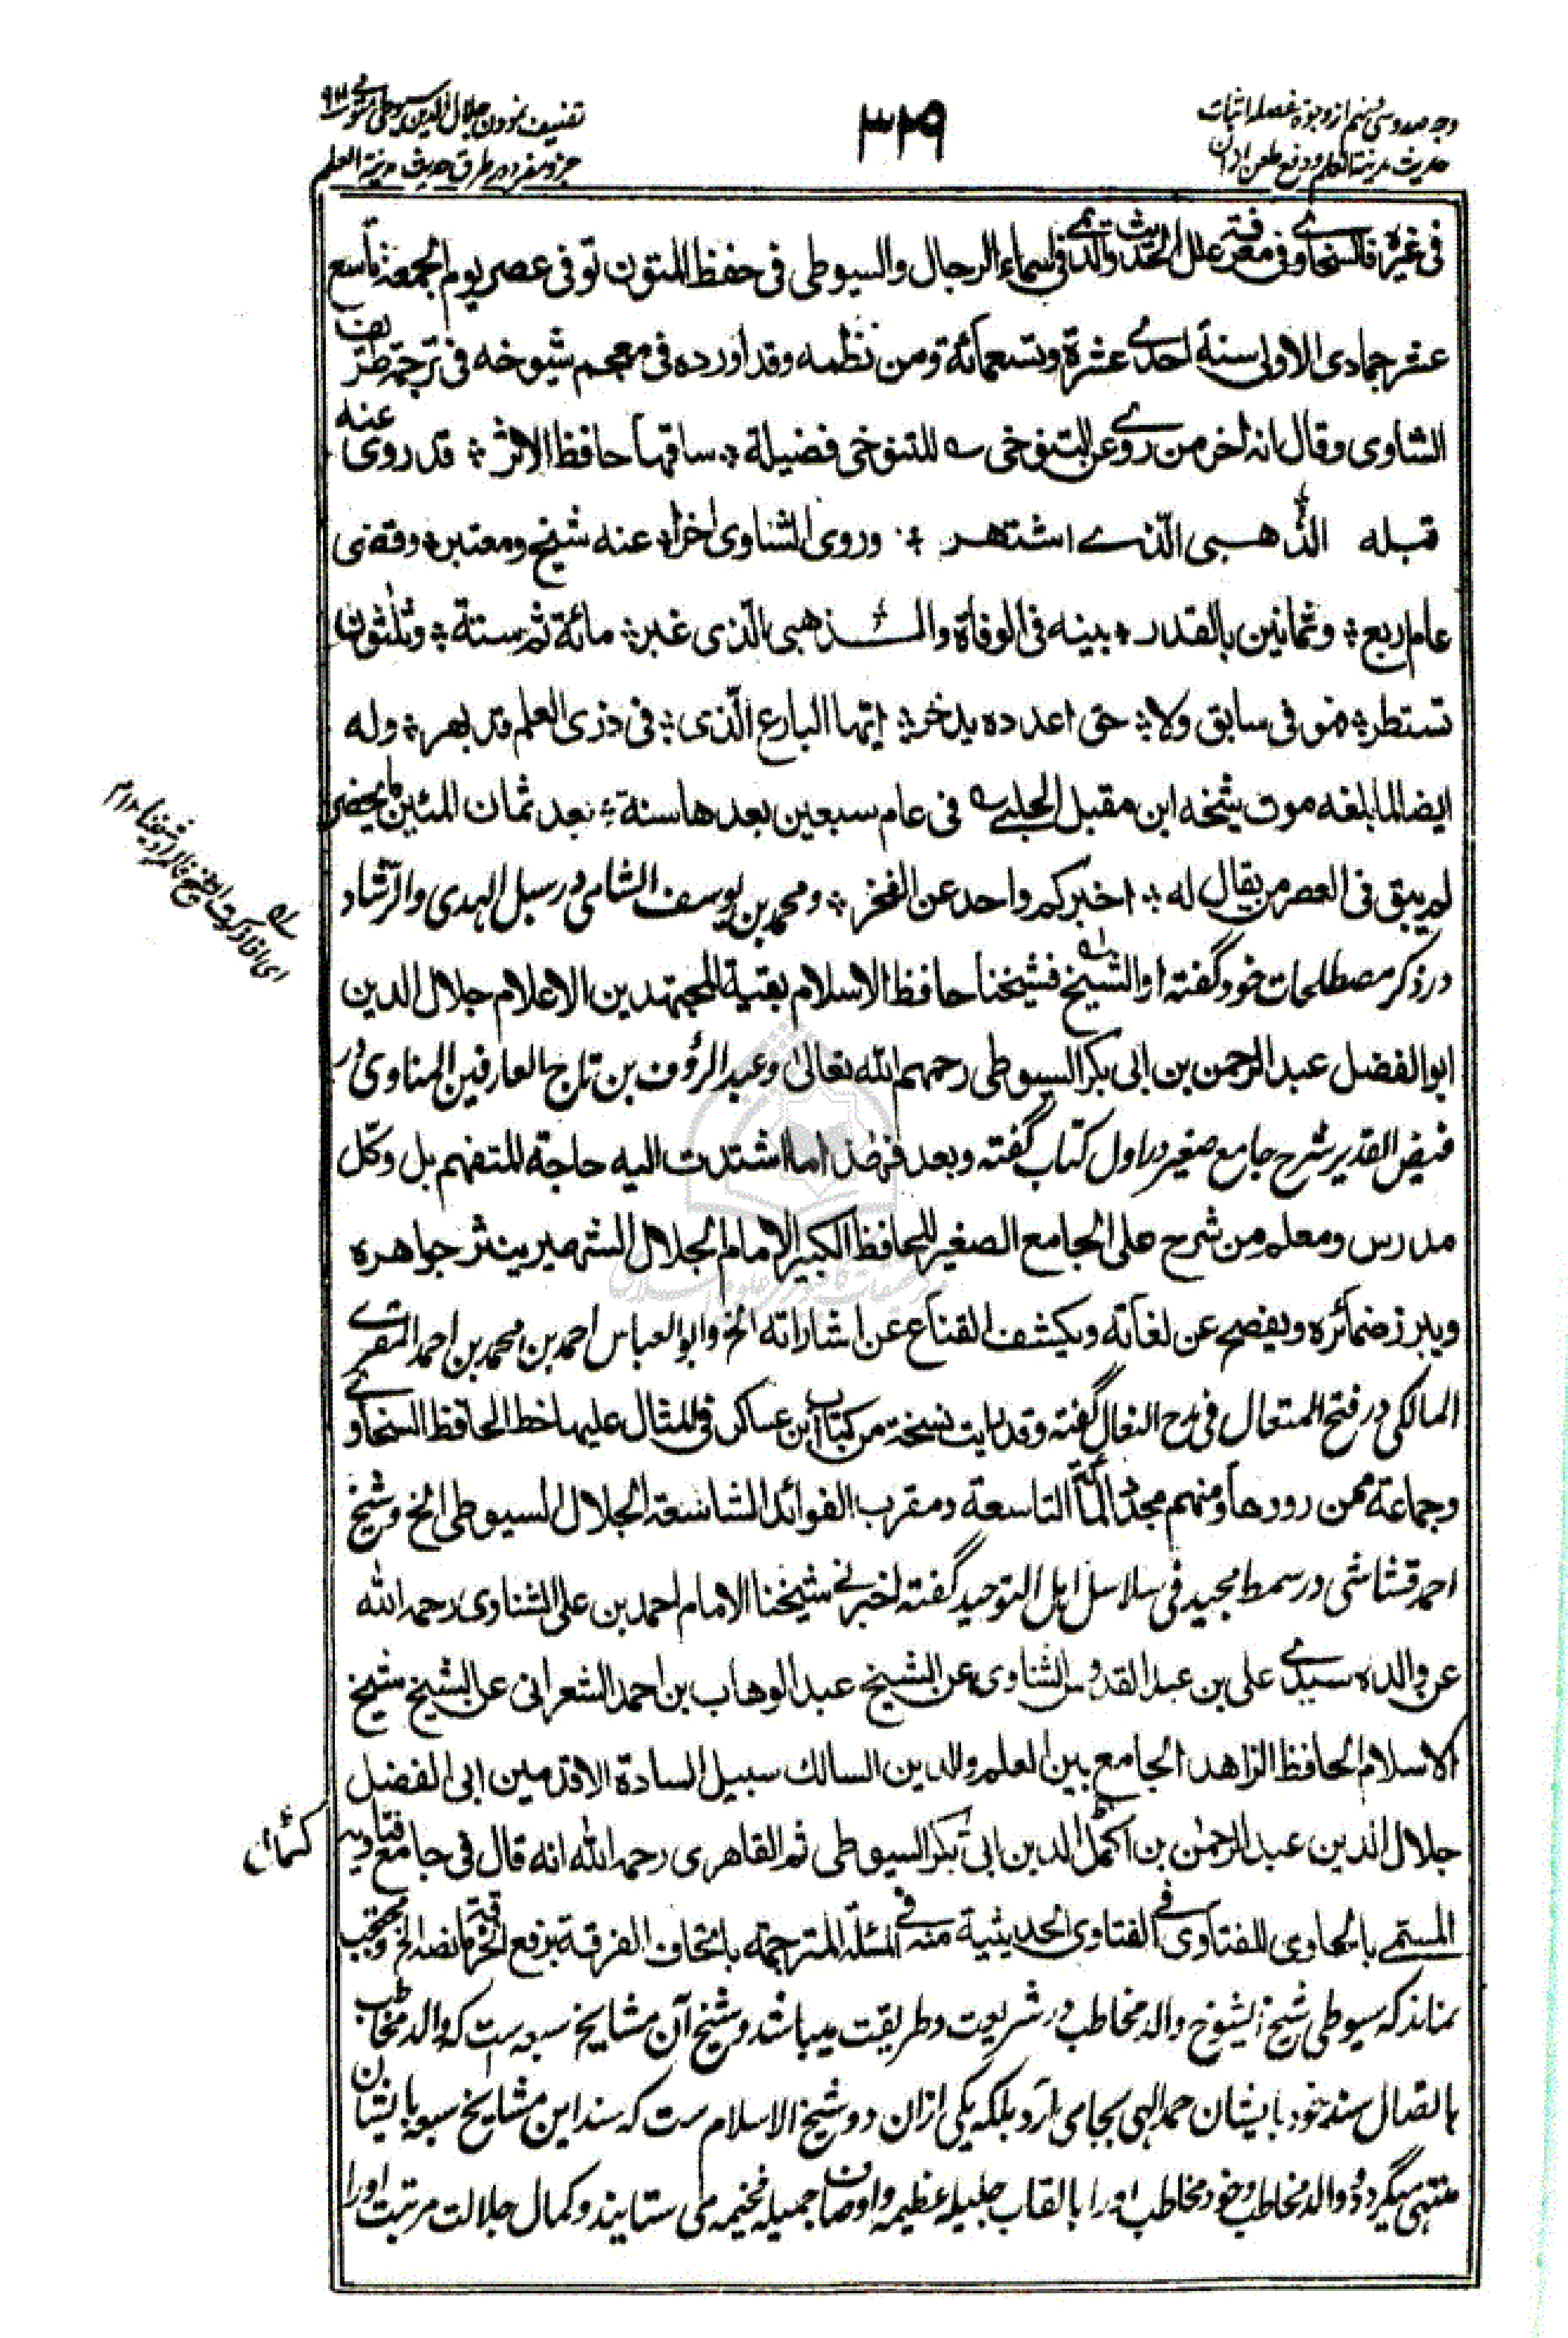 وجه صد و سی و نهم از وجوه مفصله اثبات
حدیث مدینة العلم و دفع طعن از ان
۳۲۹
تصنیف نمودن جلال الدین سیوطی
جزو مفرد در طرق حدیث مدینة العلم
فی غیره فالسخاوی فی معرفة علل الحدیث والدیمی فی اسماء الرجال والسیوطی فی حفظ المتون توفی عصر یوم الجمعة تاسع
عشر جمادی الاولی سنة احدی عشرة وتسعمائة ومن نظمه وقد اورده فی معجم شیوخه فی ترجمة
الشاوی وقال انه اخر من روی عن التنوخی للتنوخی فضیلة ساقها حافظ الاثر قد روی عنه
قبله الذهبی الّذی اشتهر وروی الشاوی اخرا عنه شیخ ومعتبر وقضی
عام اربع وثمانین بالقدر بینه فی الوفاة والذهبی الّذی غبر مائة ثم ستة وثلثون
تستطر فی سابق ولا حتی اعدده یدخر ایّها البارع الّذی فی ذری العلم قد بهر وله
ایضا لما بلغه موت شیخه ابن مقبل الحلبی فی عام سبعین بعدها سنة بعد ثمان المئین
لم یبقی فی العصر من یقال له اخبرکم واحد عن الفخر ومحمد بن یوسف الشامی در سبل الهدی والرّشاد
در ذکر مصطلحات خود گفته او الشیخ فشیخنا حافظ الاسلام بقیة المجتهدین الاعلام جلال الدین
ابو الفضل عبد الرحمن بن ابی بکر السیوطی رحمهم الله تعالی وعبد الرؤف بن تاج العارفین المناوی در
فیض القدیر شرح جامع صغیر در اول کتاب گفته وبعد فهذا ما اشتدت الیه حاجة المتفهم بل وکل
مدرس ومعلم من شرح علی الجامع الصغیر للحافظ الکبیر الامام الجلال الشهیر ینثر جواهره
ویبرز ضمائره ویفصح عن لغاته ویکشف القناع عن اشاراته الخ وابو العباس احمد بن محمد بن احمد المقری
المالکی در فتح المتعال فی مدح النعال گفته وقد رایت نسخة من کتاب ابن عساکر فی المثال علیها خط الحافظ السخاوی
وجماعة ممن رووها ومنهم مجدد المأیة التاسعة ومقرب الفوائد الشاسعة الجلال السیوطی الخ وشیخ
احمد قشاشی در سمط مجید فی سلاسل اهل التوحید گفته اخبرنی شیخنا الامام احمد بن علی الشناوی رحمه الله
عن والده سیدی علی بن عبد القدوس الشناوی عن الشیخ عبد الوهاب بن احمد الشعرانی عن الشیخ شیخ
الاسلام الحافظ الزاهد الجامع بین العلم والدین السالک سبیل السادة الاقدمین ابی الفضل
جلال الدین عبد الرحمٰن بن اکمل الدین ابی بکر السیوطی ثم القاهری رحمه الله انه قال فی جامع فتاویه
المسمی بالحاوی للفتاوی فی الفتاوی الحدیثیة منه فی المسئلة المترجمة باتحاف الفرقة برفع الخرقة ما نصه الخ ومحتجب
نماند که سیوطی شیخ الشیوخ والد مخاطب در شریعت وطریقت میباشد وشیخ آن مشایخ سبعه ست که والد مخاطب
باتصال سند خود بایشان حمد الهی بجا می آرد بلکه یکی ازان دو شیخ الاسلام ست که سند این مشایخ سبعه بایشان
منتهی میگردد و والد مخاطب وخود مخاطب او را بالقاب جلیله عظیمه واوصاف جمیله فخیمه می ستایند وکمال جلالت مرتبت او را